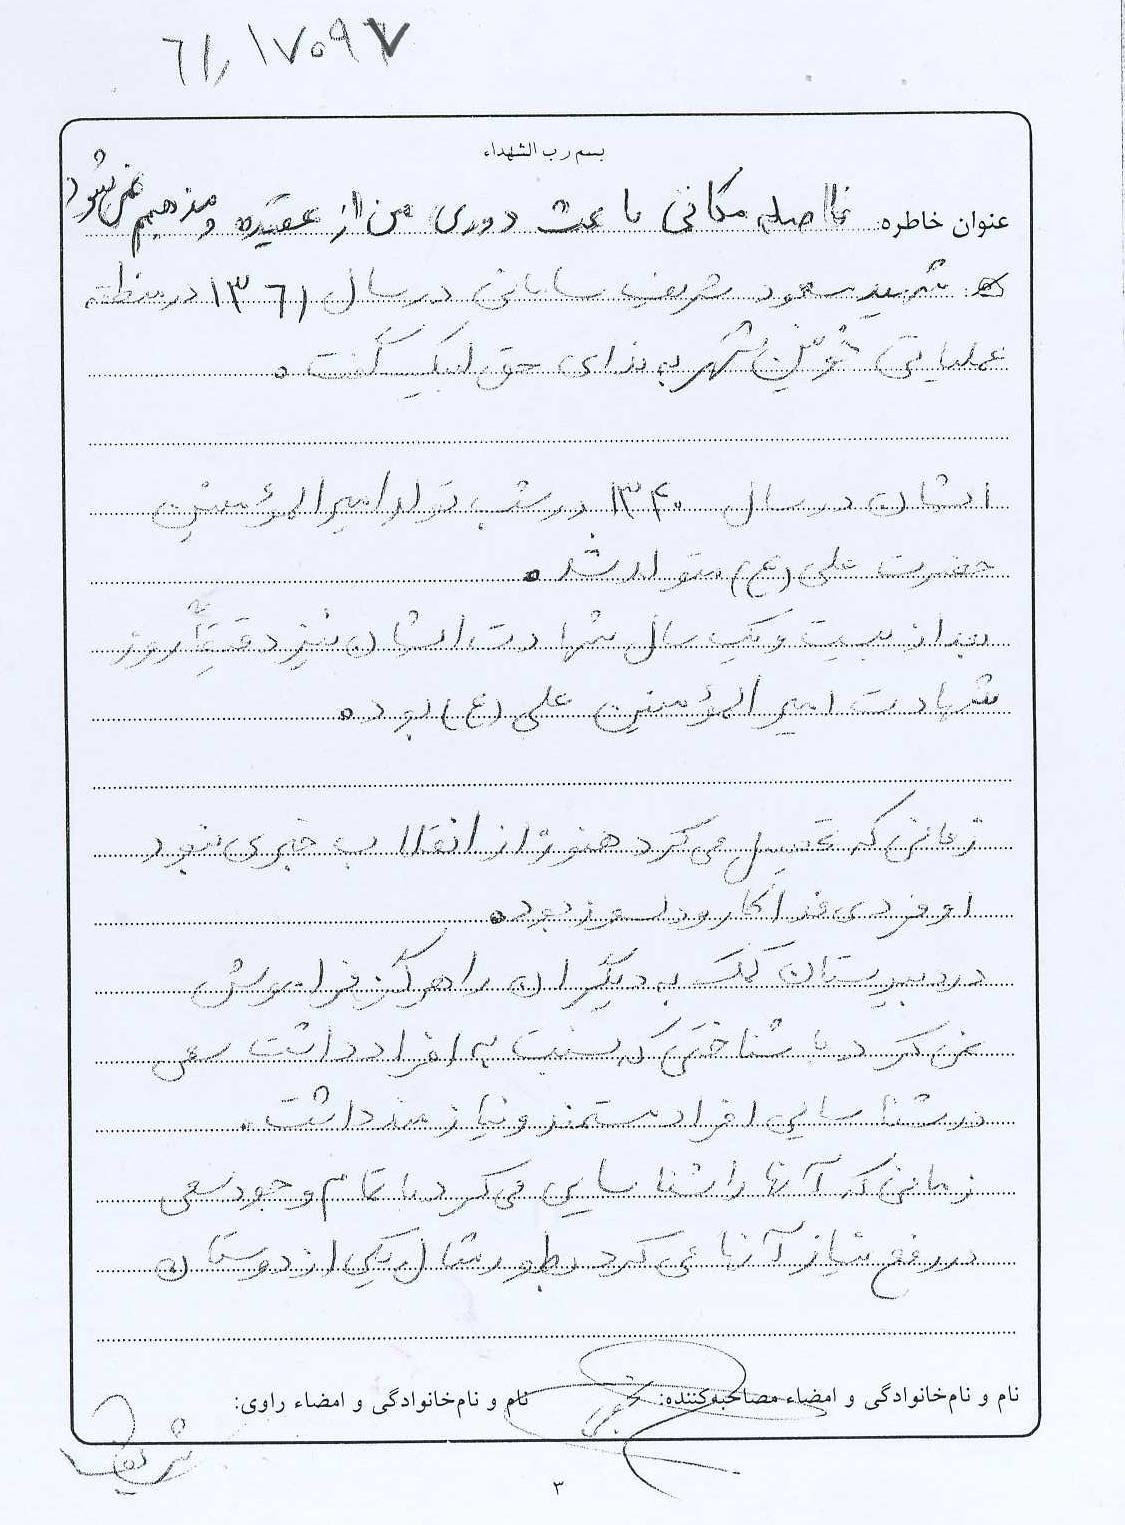 ۶۱/۱۷۰۹۷
بسم رب الشهداء
عنوان خاطره: فاصله مکانی باعث دوری من از عقیده و مذهبم نمی‌شود
شهید مسعود شریف سامانی در سال ۱۳۶۱ در منطقه
عملیاتی خونین شهر به ندای حق لبیک گفت.
ایشان در سال ۱۳۴۰ در شب تولد امیرالمؤمنین
حضرت علی (ع) متولد شد.
بعد از بیست و یک سال شهادت ایشان نیز دقیقاً روز
شهادت امیرالمؤمنین علی (ع) بود.
زمانی که تحصیل می‌کرد هنوز از انقلاب خبری نبود
او فردی فداکار و دلسوز بود.
در دبیرستان کمک به دیگران را هرگز فراموش
نمی‌کرد با شناختی که نسبت به افراد داشت سعی
در شناسایی افراد مستمند و نیازمند داشت.
زمانی که آنها را شناسایی می‌کرد با تمام وجود سعی
در رفع نیاز آنها می‌کرد بطور مثال یکی از دوستان
نام و نام‌خانوادگی و امضاء مصاحبه‌کننده:
نام و نام‌خانوادگی و امضاء راوی:
۳